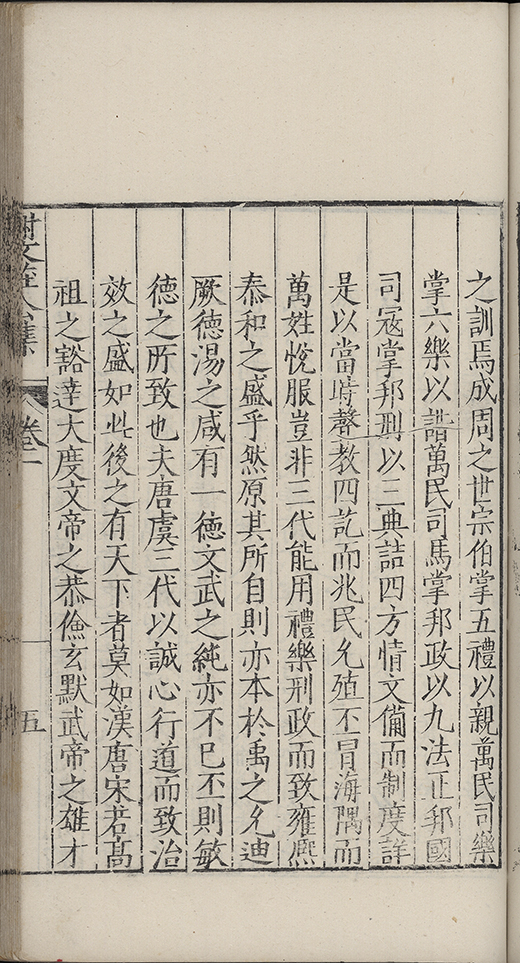 之訓焉成周之世宗伯掌五禮以親萬民司樂
掌六樂以諧萬民司馬掌邦政以九法正邦國
司冦掌邦刑以三典詰四方情文備而制度詳
是以當時聲教四訖而兆民允殖丕冒海隅而
萬姓悅服豈非三代能用禮樂刑政而致雍熈
泰和之盛乎然原其所自則亦本於禹之允迪
厥德湯之咸有一德文武之純亦不已丕則敏
德之所致也夫唐虞三代以誠心行道而致治
效之盛如此後之有天下者莫如漢唐宋若髙
祖之豁達大度文帝之恭儉玄默武帝之雄才
謝文莊公集 卷一 五